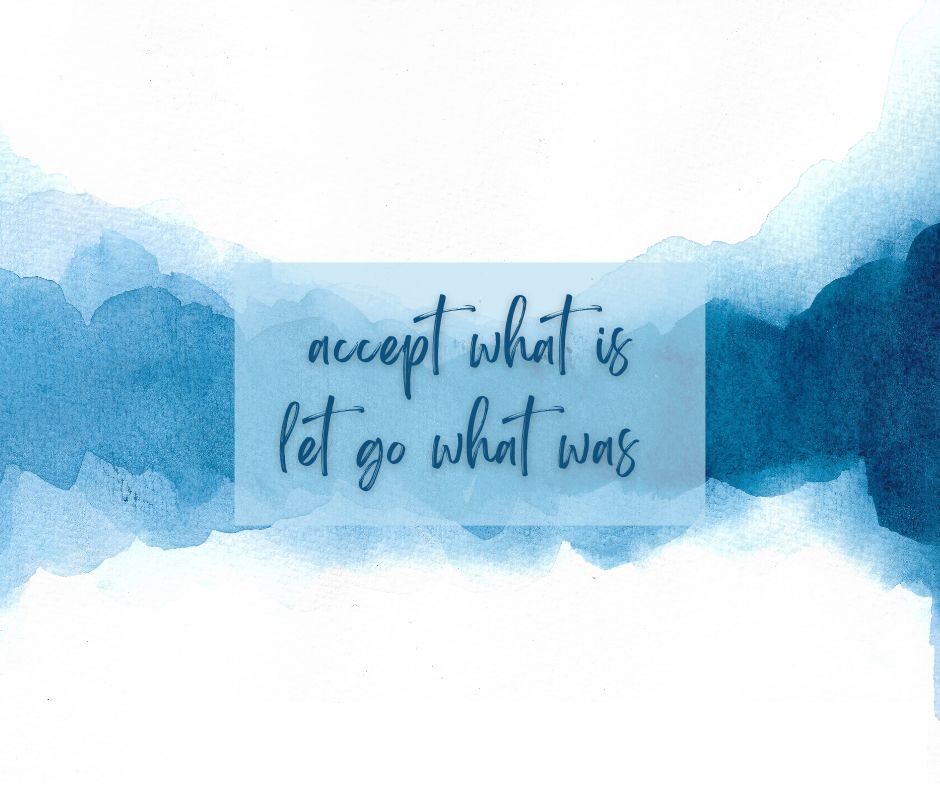 accept what is
let go what was